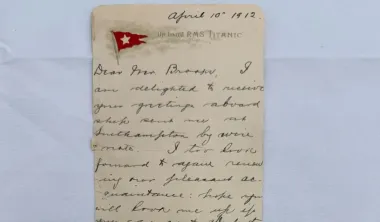 April 10th 1912.
On board R.M.S. TITANIC
Dear Mr. Brooks, I
am delighted to receive
your greetings aboard
ship sent me at
Southampton by wire
mate. I too look
forward to again renew
ing our pleasant ac
quaintance: hope you
will look me up if